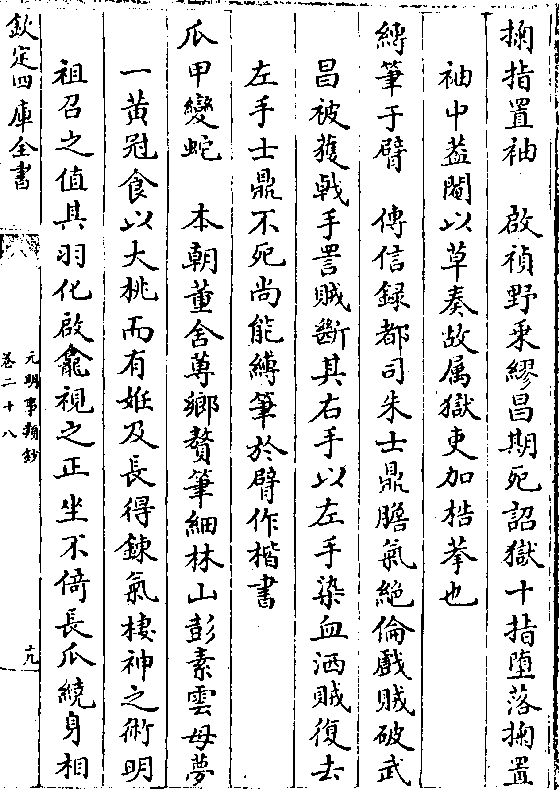 掬指置袖　啟禎野乘繆昌期死詔獄十指墮落掬置
袖中葢閹以草奏故属獄吏加梏拳也
縛筆于臂　傳信録都司朱士鼎膽氣絶倫戲賊破武
昌被獲戟手詈賊斷其右手以左手染血洒賊復去
左手士鼎不死尚能縛筆於臂作楷書
爪甲變蛇　本朝董含蓴鄉贅筆細林山彭素雲母夢
一黄冠食以大桃而有娠及長得錬氣棲神之術明
祖召之值其羽化啟龕視之正坐不倚長爪繞身相
欽定四庫全書
元明事類鈔
卷二十八
十九